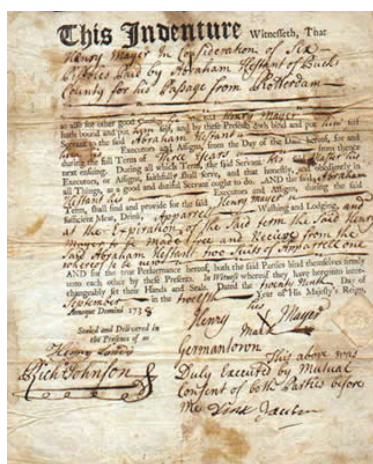 This Indenture Witnesseth, That
Henry Mayer in Consideration of Six
Pistoles Paid by Abraham Hestant of Bucks
County for his Pasage from Rotterdam
as also for other good Henry Mayer
hath bound and put him self, and by these Presents doth bind and put him self
Servant to the said Abraham Hestant
Executors and Assigns, from the Day of the Date hereof, for and
during the full Term of Three Years from thence
next ensuing. During all which Term, the said Servant his said Master his
Executors, or Assigns, faithfully shall serve, and that honestly, and obediently in
all Things, as a good and dutiful Servant ought to do. AND the said Abraham
Hestant his Executors and Assigns, during the said
Term, shall find and provide for the said Henry Mayer
sufficient Meat, Drink, Apparrell Washing and Lodging, and
at the Expiration of the Said term the Said Henry
Mayer to be made free and Recieve from the
Said Abraham Hestant two Suits of Apparrell one
whereof to be new
AND for the true Performance hereof, both the said Parties bind themselves firmly
unto each other by these Presents. In Witness whereof they have hereunto inter-
changeably set their Hands and Seals. Dated the twenty Ninth Day of
September in the twelfth Year of His Majesty's Reign,
Annoque Domini 1738
his
Henry X Mayer
mark
Sealed and Delivered in
the Presence of us
Rich Johnson
Germantown
This above was
Duly Executed by Mutual
Consent of both Parties before
me